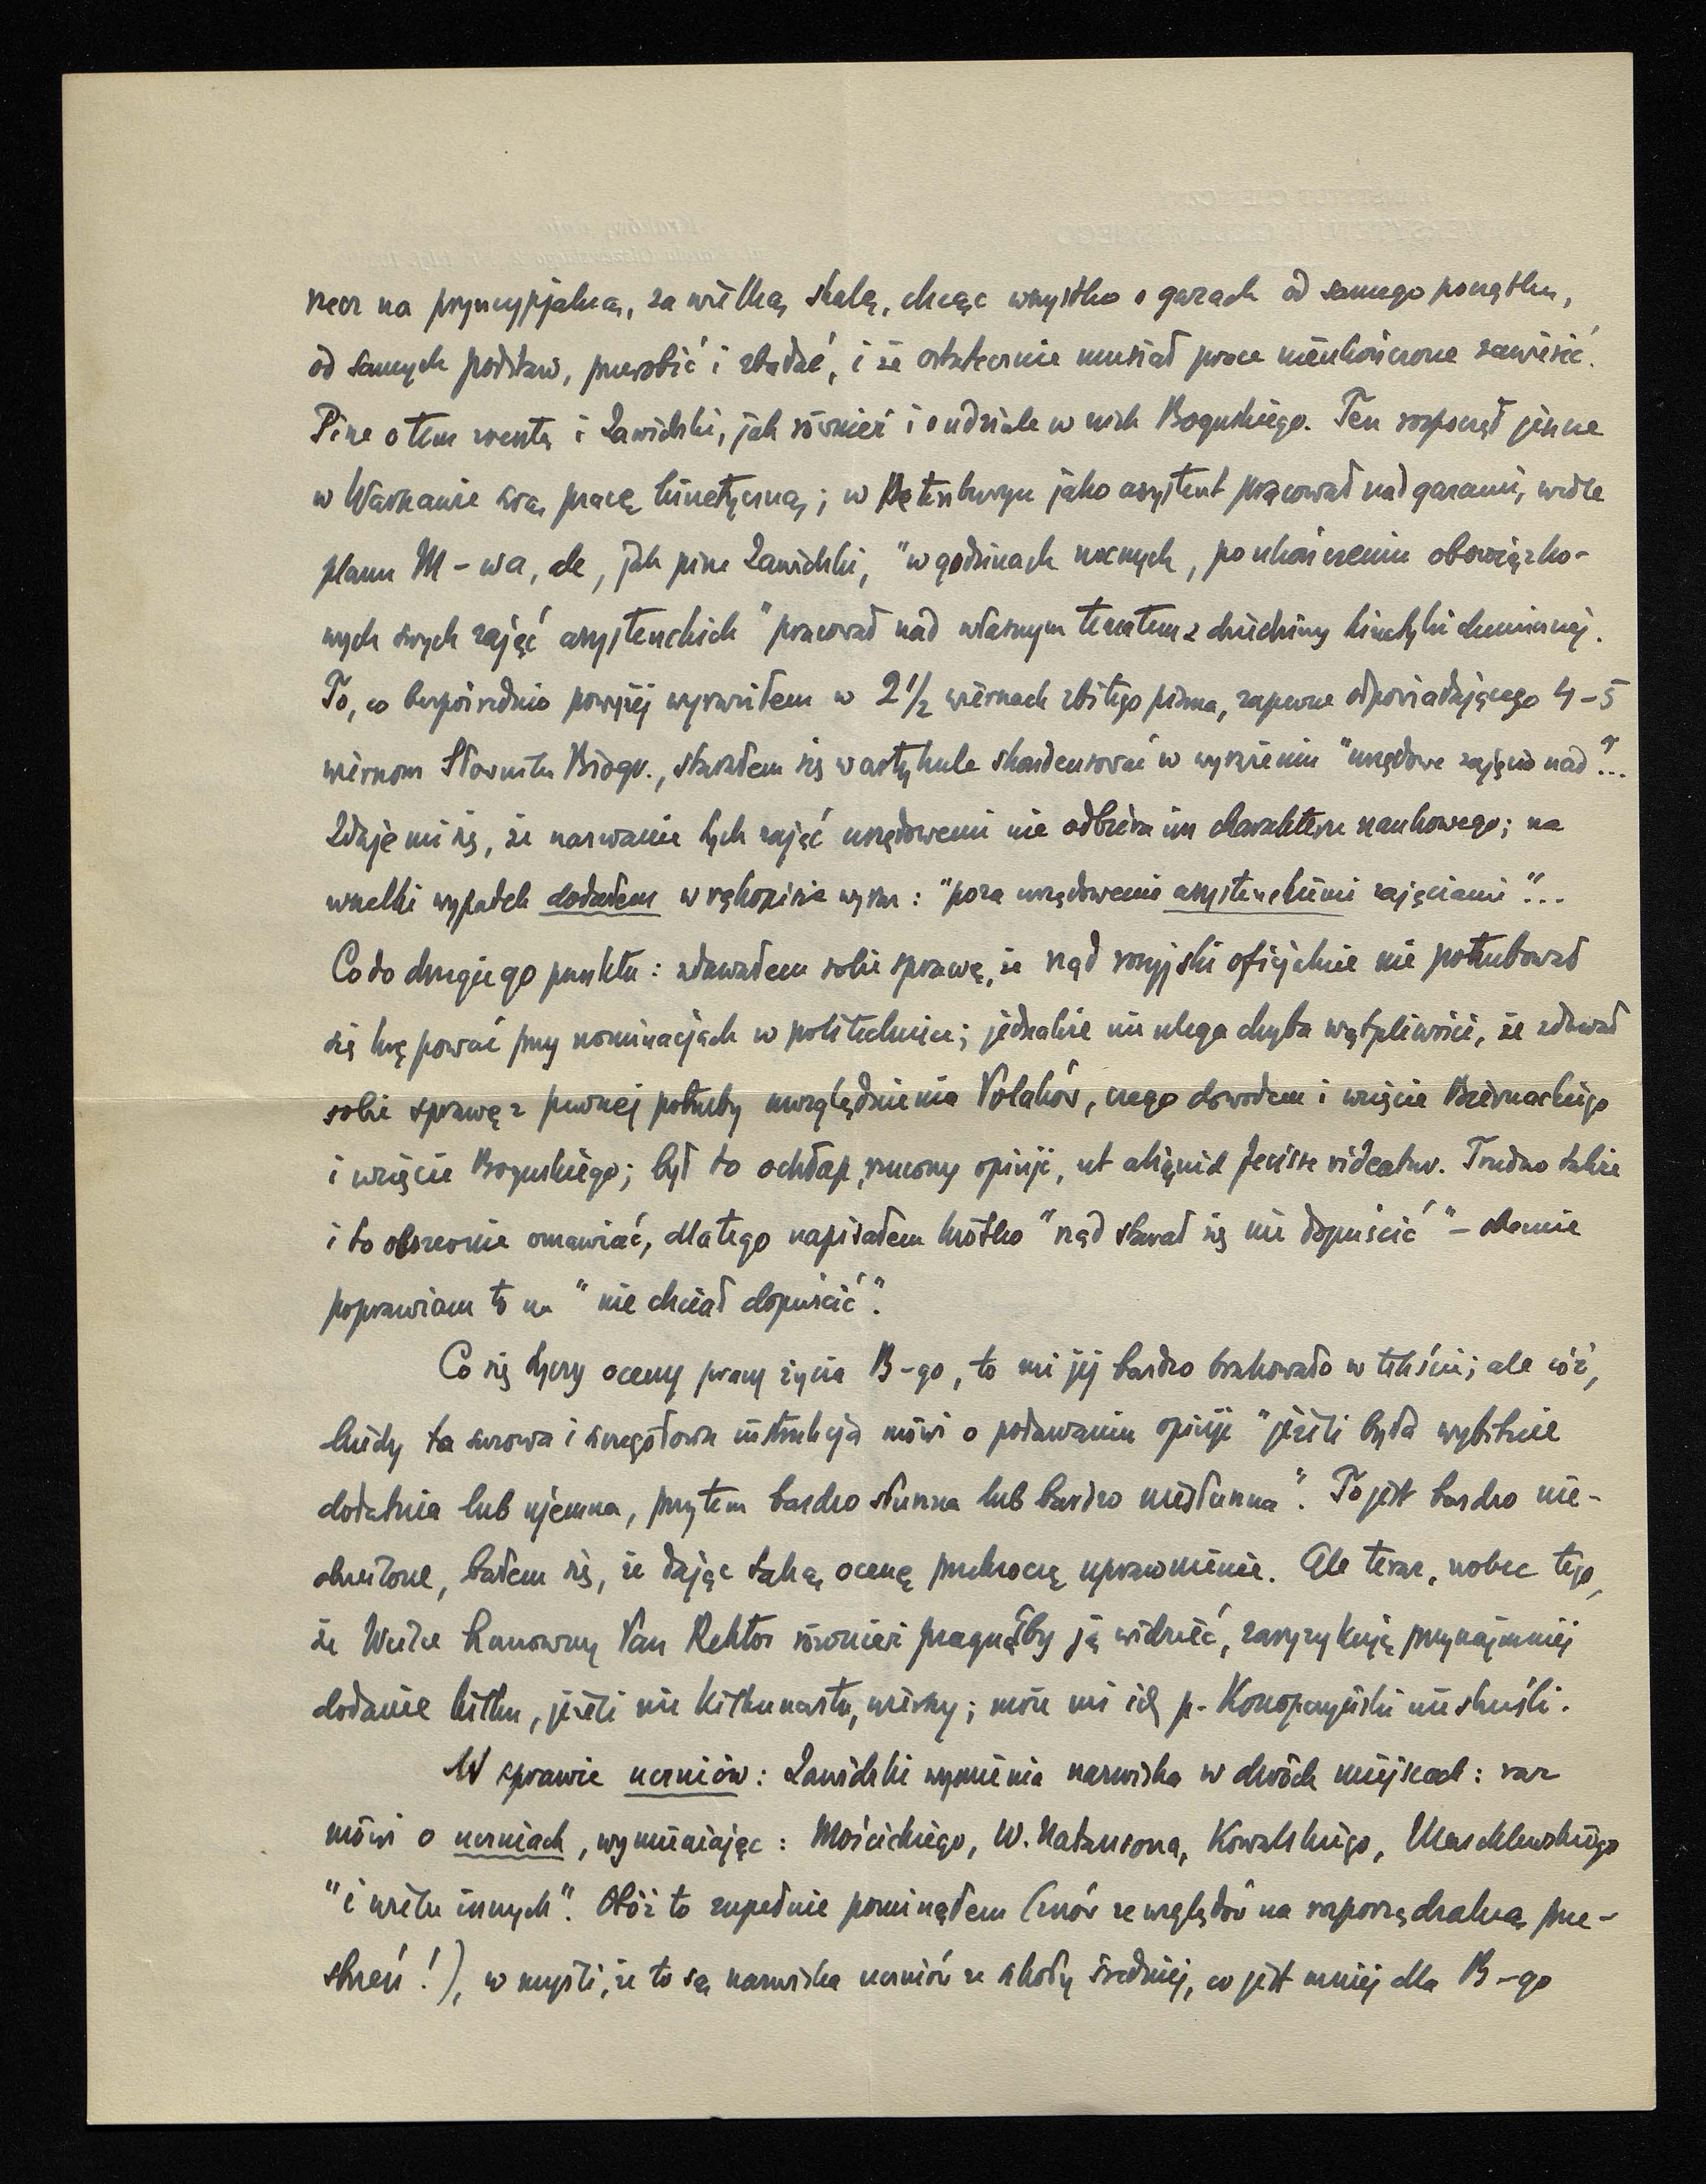 rzecz na pryncypjalną, za wielką skalę, chcąc wszystko o gazach od samego początku,
od samych podstaw, przerobić i zbadać, i że ostatecznie musiał prace nieukończone zawiesić.
Pisze o tem zresztą i Zawidzki, jak również i o udziale w nich Boguskiego. Ten rozpoczął jeszcze
w Warszawie swą pracę kinetyczną; w Petersburgu jako asystent pracował nad gazami, wedle
planu M-wa, ale, jak pisze Zawidzki, "w godzinach nocnych, po ukończeniu obowiązko-
wych swych zajęć asystenckich" pracował nad własnym tematem z dziedziny kinetyki chemicznej.
To, co bezpośrednio powyżej wyraziłem w 2 1/2 wierszach zbitego pisma, zapewne odpowiadającego 4-5
wierszom Słownika Biogr., starałem się w artykule skondensować w wyrażeniu "urzędowe zajęcia nad"...
Zdaje mi się, że nazwanie tych zajęć urzędowemi nie odbiera im charakteru naukowego; na
wszelki wypadek dodałem w rękopisie wyraz: "poza urzędowemi asystenckiemi zajęciami"...
Co do drugiego punktu: zdawałem sobie sprawę, że rząd rosyjski oficjalnie nie potrzebował
się krępować przy nominacjach w politechnice; jednakże nie ulega chyba wątpliwości, że zdawał
sobie sprawę z pewnej potrzeby uwzględnienia Polaków, czego dowodem i wzięcie Biernackiego
i wzięcie Boguskiego; był to ochłap, rzucony opinji, ut aliquid fecisse videatur. Trudno także
i to obszernie omawiać, dlatego napisałem krótko "rząd starał się nie dopuścić" - obecnie
poprawiam to na "nie chciał dopuścić".
Co się tyczy oceny pracy życia B-go, to mi jej bardzo brakowało w tekście; ale cóż,
kiedy ta surowa i szczegółowa instrukcja mówi o podawaniu opinji "jeżeli była wybitnie
dodatnia lub ujemna, przytem bardzo słuszna lub bardzo niesłuszna". To jest bardzo nie-
określone, bałem się, że dając taką ocenę przekroczę uprawnienie. Ale teraz, wobec tego,
że Wielce Szanowny Pan Rektor również pragnąłby ją widzieć, zaryzykuję przynajmniej
dodanie kilku, jeżeli nie kilkunastu, wierszy; może mi ich p. Konopczyński nie skreśli.
W sprawie uczniów: Zawidzki wymienia nazwiska w dwóch miejscach: raz
mówi o uczniach, wymieniając: Mościckiego, W. Natansona, Kowalskiego, Marchlewskiego
"i wielu innych". Otóż to zupełnie pominąłem (znów ze względów na rozporządzalną prze-
strzeń!), w myśli, że to są nazwiska uczniów ze szkoły średniej, co jest mniej dla B-go